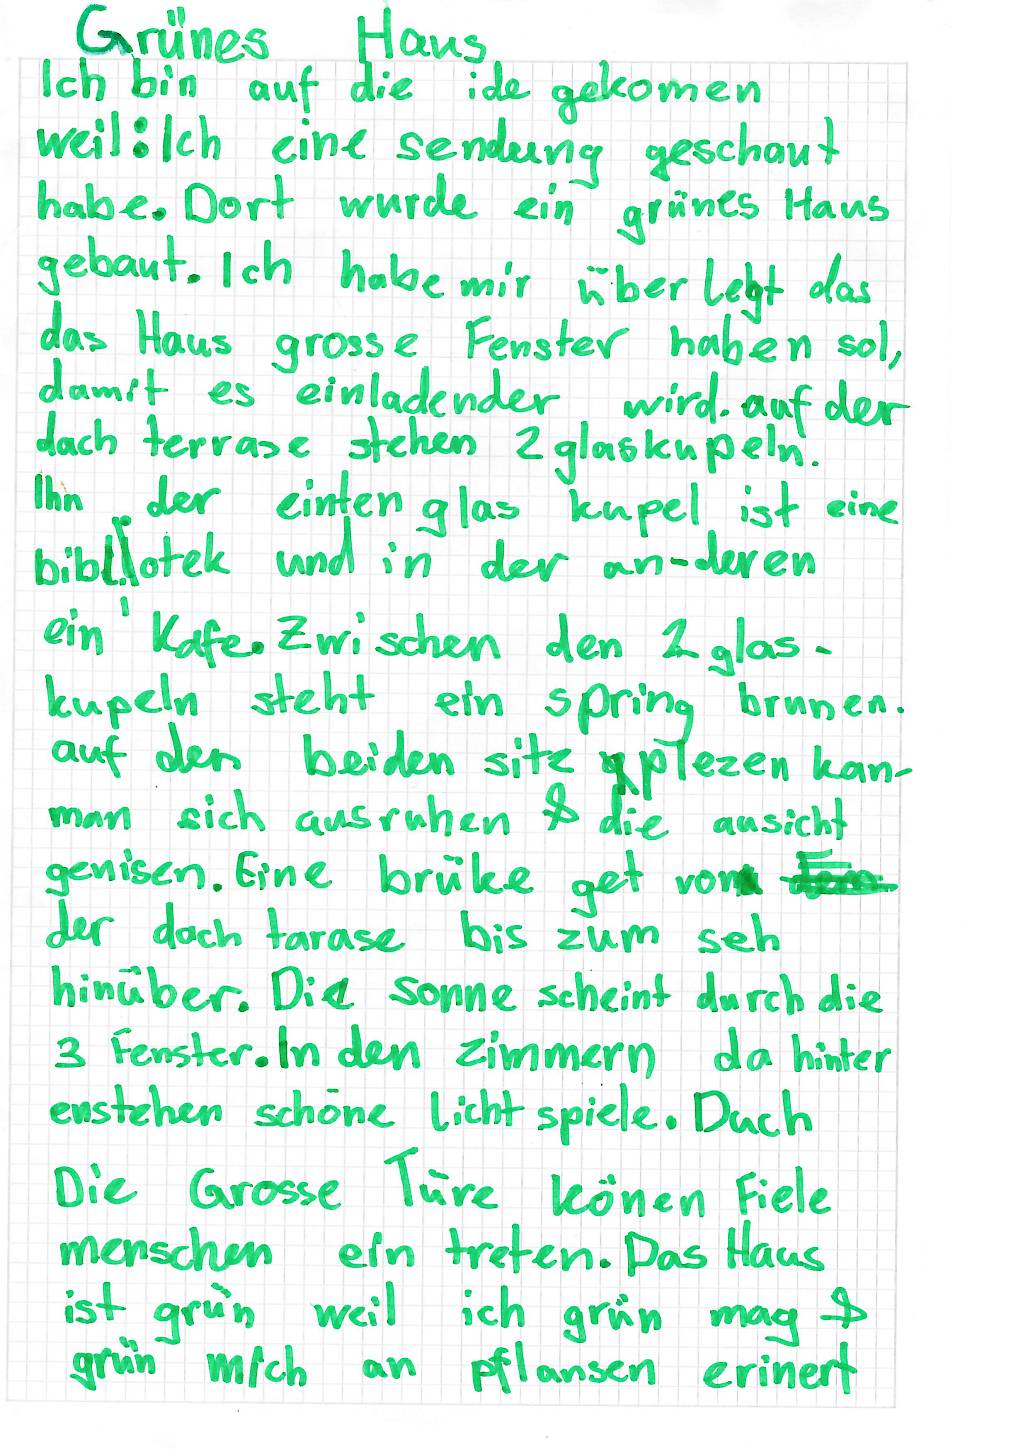 Grünes Haus
Ich bin auf die ide gekomen
weil: Ich eine sendung geschaut
habe. Dort wurde ein grünes Haus
gebaut. Ich habe mir über legt das
das Haus grosse Fenster haben sol,
damit es einladender wird. auf der
dach terrase stehen 2 glaskupeln.
Ihn der einten glas kupel ist eine
bibliotek und in der an-deren
ein Kafe. Zwischen den 2 glas-
kupeln steht ein spring brunen.
auf den beiden sitz plezen kan-
man sich ausruhen & die ausicht
genisen. Eine brüke get von
der dach tarase bis zum seh
hinüber. Die sonne scheint durch die
3 Fenster. In den zimmern da hinter
enstehen schöne licht spiele. Duch
Die Grosse Türe könen Fiele
menschen ein treten. Das Haus
ist grün weil ich grün mag &
grün mich an pflansen erinert